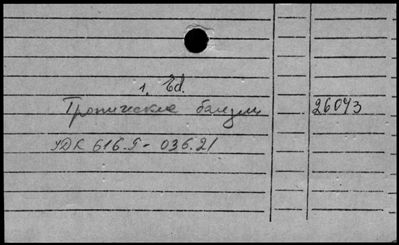 1. Ed.
Тропические болезни 26043
УДК 616.9-036.21